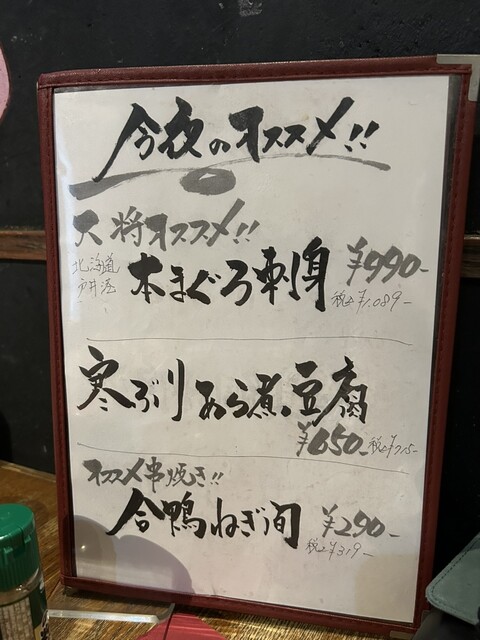 今夜のオススメ!!
大将オススメ!!
北海道
戸井港
本まぐろ刺身
¥990-
税込¥1,089-
寒ぶりあら煮豆腐
¥650-税込¥715-
オススメ串焼き!!
合鴨ねぎ間
¥290-
税込¥319-